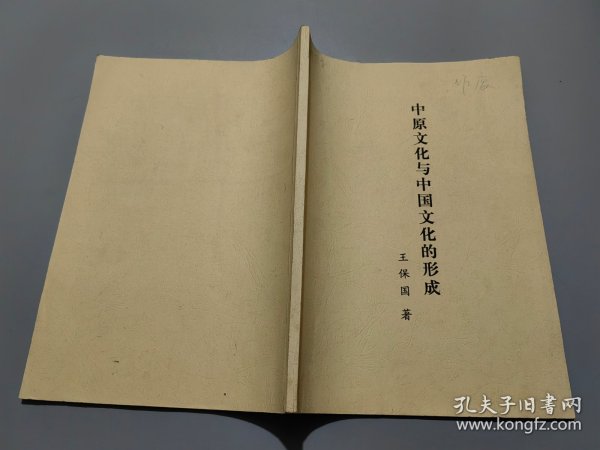 中原文化与中国文化的形成
王保国 著
孔夫子旧書网
www.kongfz.com